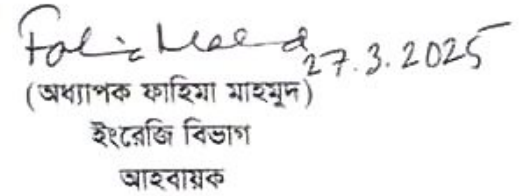 27.3.2025
(অধ্যাপক ফাহিমা মাহমুদ)
ইংরেজি বিভাগ
আহবায়ক